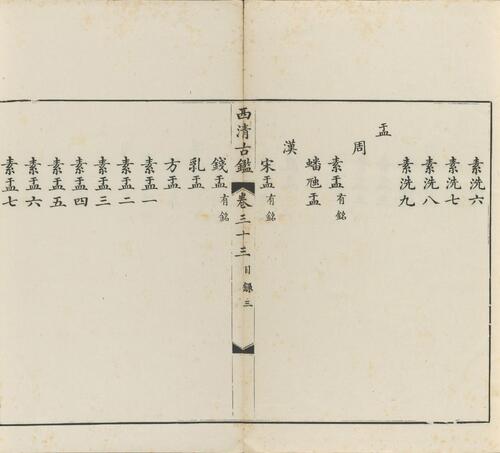 素洗六
素洗七
素洗八
素洗九
盂
周
素盂有銘
蟠虺盂
漢
宋盂有銘
西清古鑑 卷三十三 目錄 三
錢盂有銘
乳盂
方盂
素盂一
素盂二
素盂三
素盂四
素盂五
素盂六
素盂七